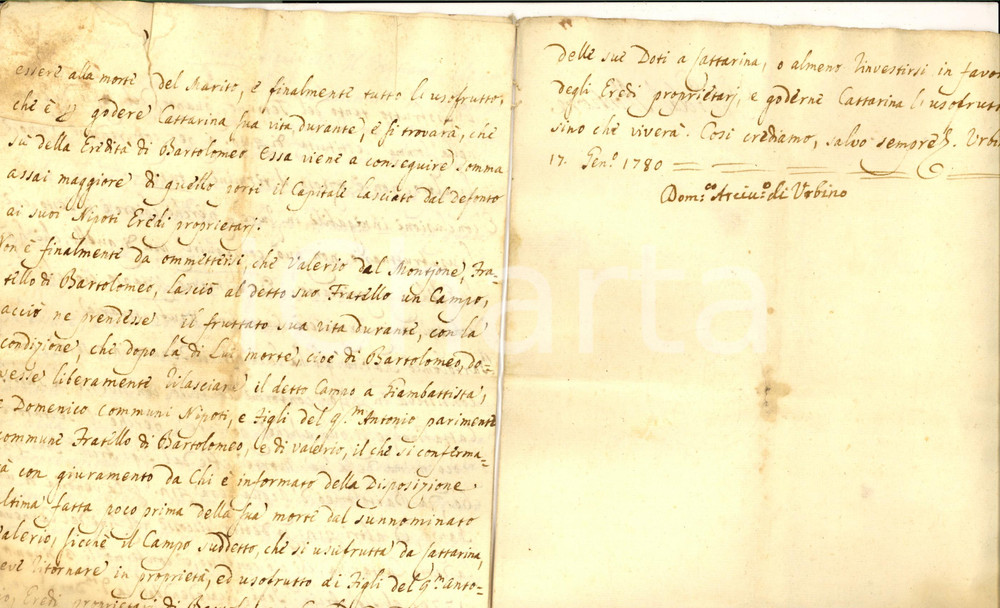 essere alla morte del Marito, e finalmente tutto l'usofrutto,
che è godere Cattarina sua vita durante, e si troverà, che
sù della Eredità di Bartolomeo essa viene a conseguire somma
assai maggiore di quello porti il Capitale lasciato dal Defonto
ai suoi Nipoti Eredi proprietarj.
Non è finalmente da ommettersi, che Valerio dal Montjone, Fra=
tello di Bartolomeo, lasciò al detto suo Fratello un Campo,
acciò ne prendesse il fruttato sua vita durante, con la
condizione, che dopo la di Lui morte, cioè di Bartolomeo, do=
vesse liberamente rilasciare il detto Campo a Giambattista,
e Domenico communi Nipoti, e Figli del q.m Antonio parimente
commune Fratello di Bartolomeo, e di Valerio, il che si conferma=
rà con giuramento da Chi è informato della Disposizione
ultima fatta poco prima della sua morte dal sunnominato
Valerio, sicchè il Campo suddetto, che si usufrutta da Cattarina,
deve ritornare in proprietà, ed usofrutto ai Figli del q.m Anto=
nio, Eredi proprietarj di
delle sue Doti a Cattarina, o almeno rinvestirsi in favor
degli Eredi proprietarj, e goderne Cattarina l'usofrutt
sino che viverà. Così crediamo, salvo sempre. Urbi
17. Gen.o 1780
Dom.co di Urbino
1Charta